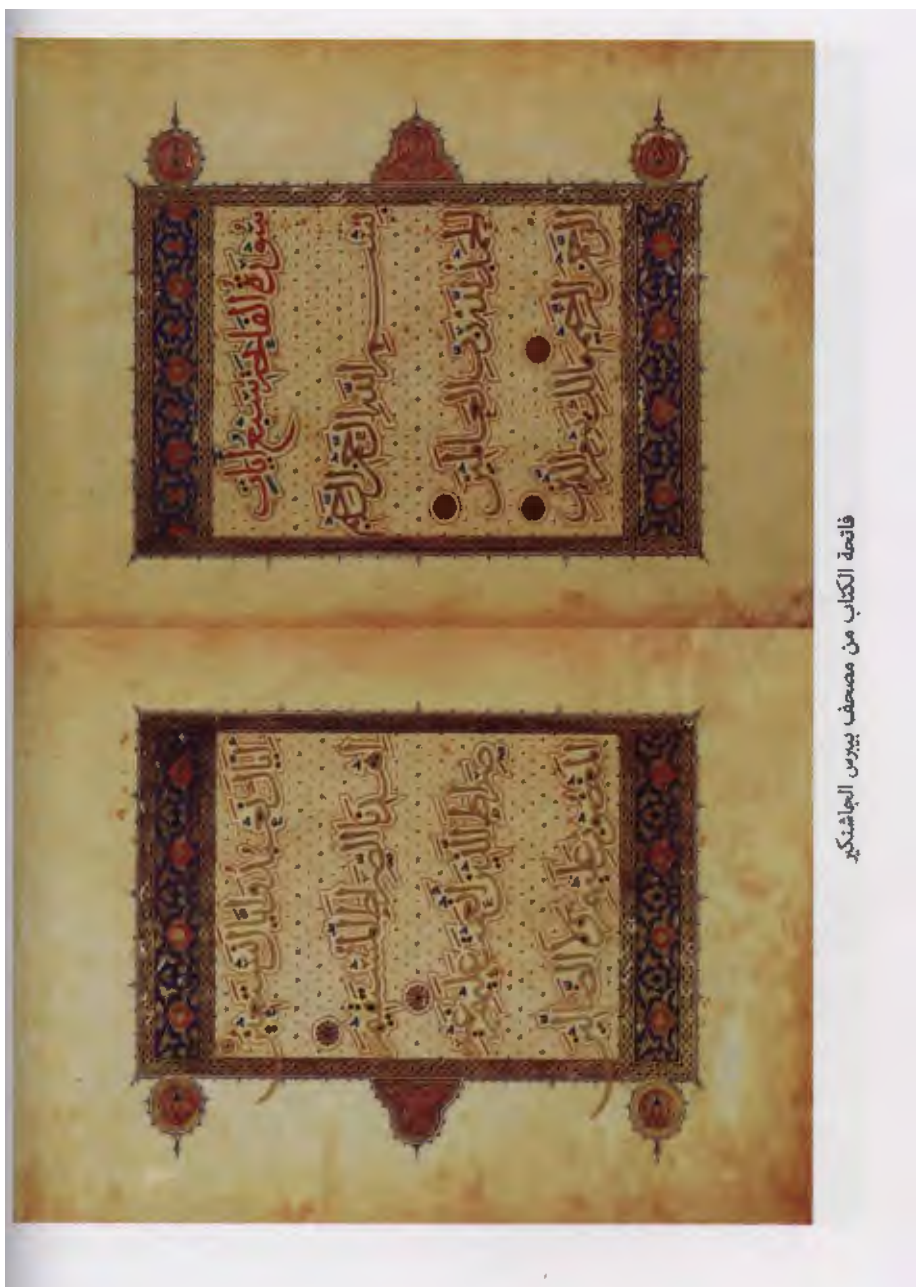 سورة الفاتحة سبع ايات
بسم الله الرحمن الرحيم
الحمد لله رب العالمين
الرحمن الرحيم مالك يوم الدين
اياك نعبد واياك نستعين
اهدنا الصراط المستقيم
صراط الذين انعمت عليهم غير
المغضوب عليهم ولا الضالين
فاتحة الكتاب من مصحف بيبرس الجاشنكير